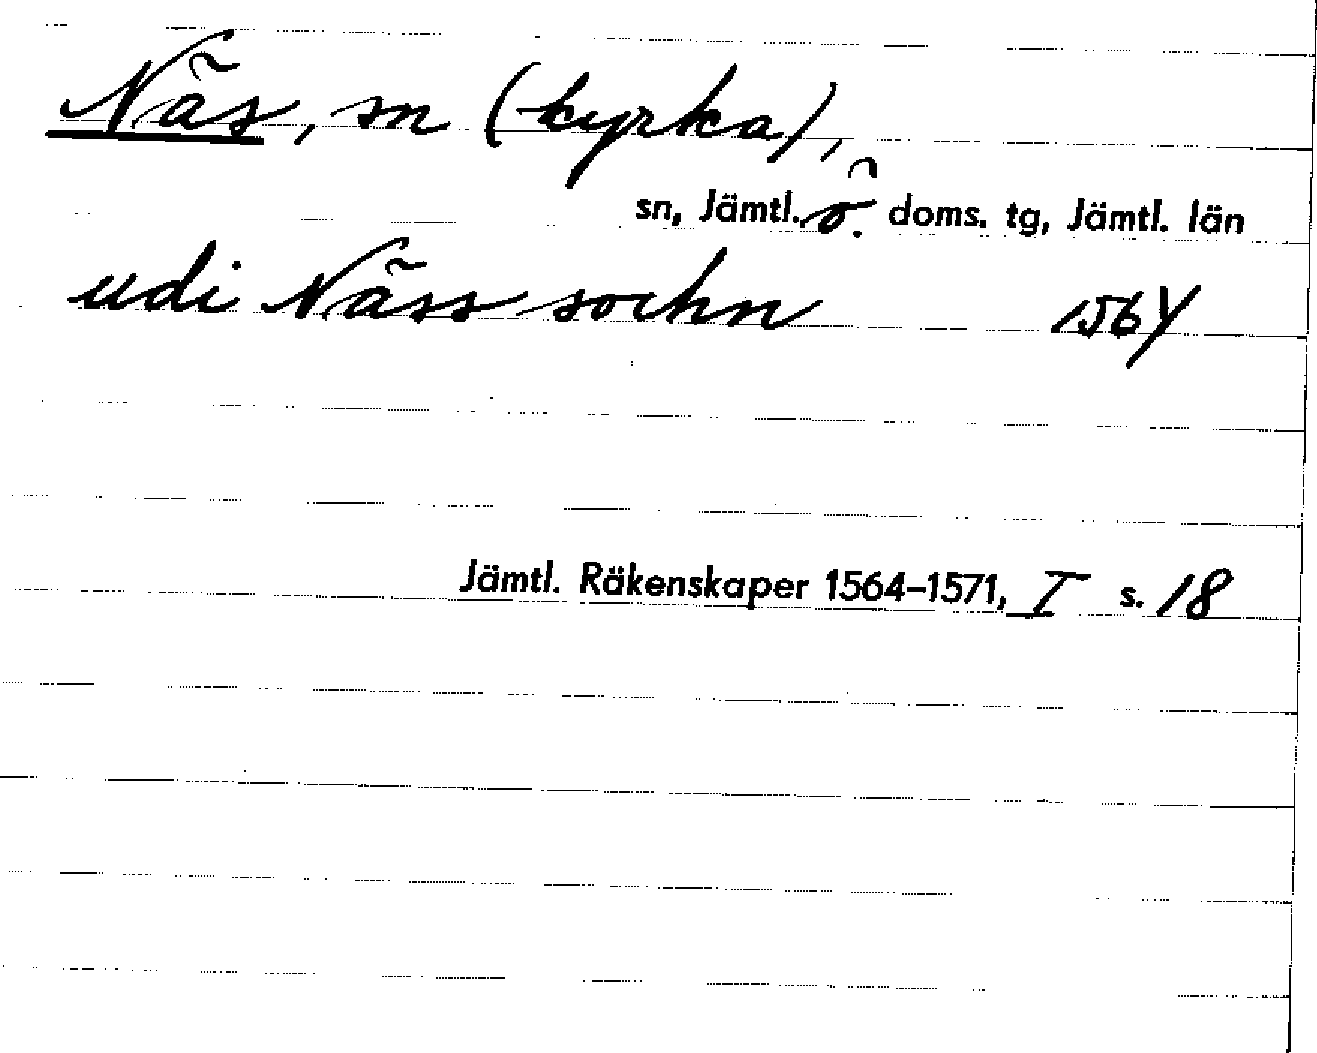 Näs, sn (kyrka),
sn, Jämtl. ö. doms. tg, Jämtl. län
udi Näss sochn 1564
Jämtl. Räkenskaper 1564–1571, I s. 18